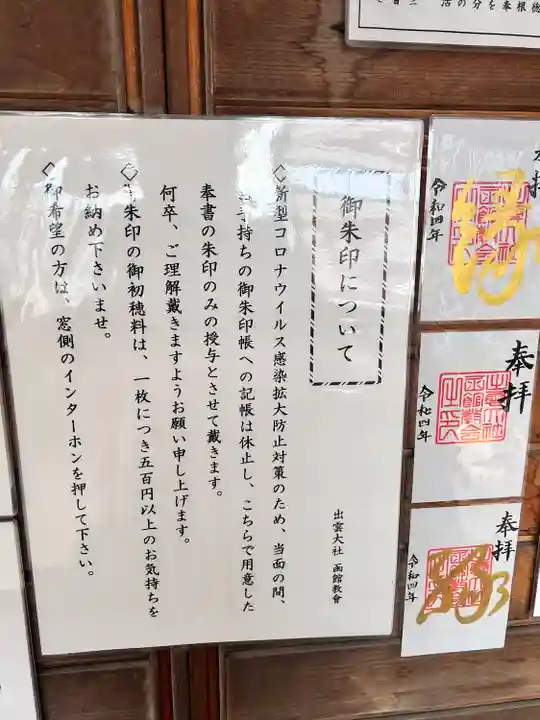 御朱印について
◇新型コロナウイルス感染拡大防止対策のため、当面の間、
お手持ちの御朱印帳への記帳は休止し、こちらで用意した
奉書の朱印のみの授与とさせて戴きます。
何卒、ご理解戴きますようお願い申し上げます。
朱印の御初穂料は、一枚につき五百円以上のお気持ちを
お納め下さいませ。
御希望の方は、窓側のインターホンを押して下さい。
出雲大社 函館教會
令和四年
奉拝
令和四年
奉拝
令和四年